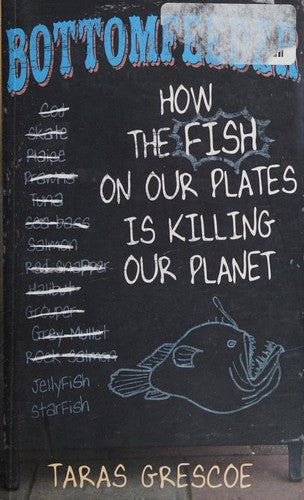 BOTTOMFEEDER
HOW
THE FISH
ON OUR PLATES
IS KILLING
OUR PLANET
Cod
Skate
Plaice
Prawns
Tuna
Sea bass
Salmon
Red snapper
Halibut
Grouper
Grey Mullet
Rock Salmon
Jellyfish
Starfish
TARAS GRESCOE